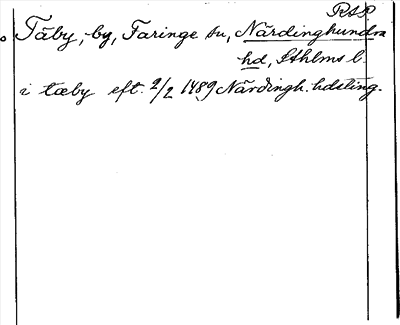 RAP
Täby, -by, Faringe sn, Närdinghundra
hd, Sthlms l.
i tæby eft. 2/2 1489 Närdingh. hdsting.